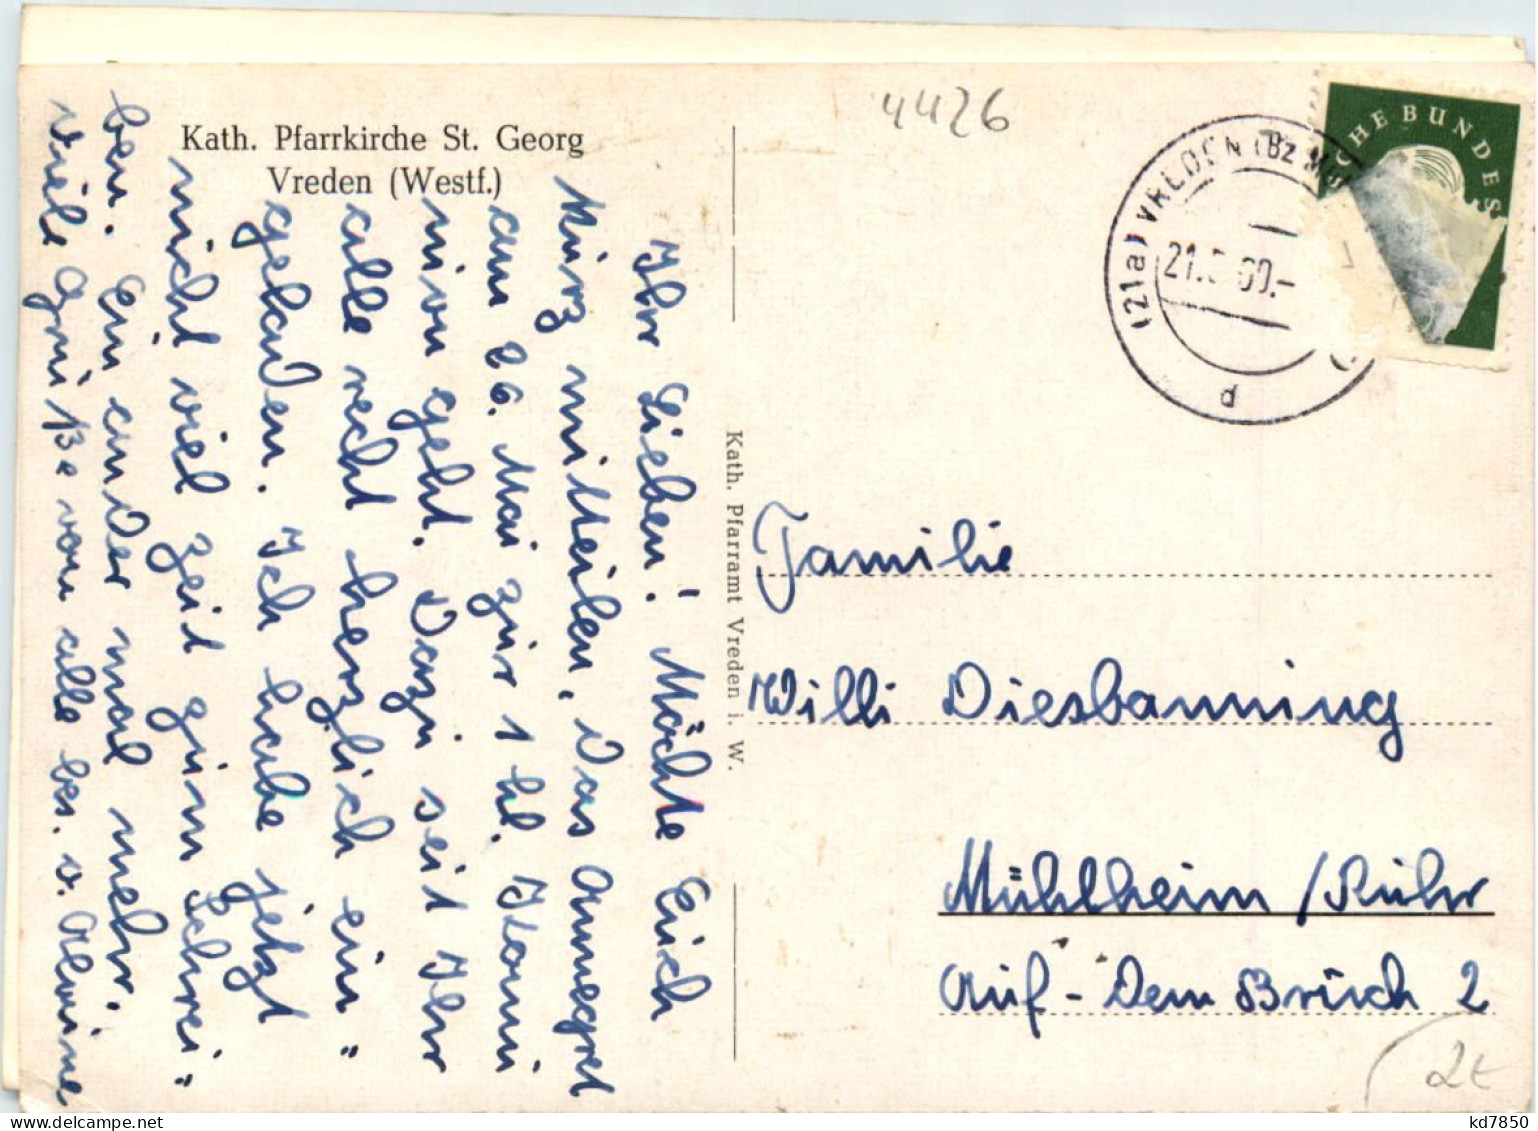 Kath. Pfarrkirche St. Georg
Vreden (Westf.)
Ihr Lieben! Möchte Euch
kurz mitteilen, das Annegret
am 26. Mai zur 1 hl. Komuni
nion geht. Dazu seit Ihr
alle recht herzlich ein"
geladen. Ich habe jetzt
nicht viel zeit zum Schrei"
ben. Ein ander mal mehr.
Viele Grüße von alle bes. v. Alwine
Kath. Pfarramt Vreden i. W.
4426
(21a) VREDEN (Bz
21. 60.-
d
CHE BUNDES
Familie
Willi Diesbanning
Mühlheim / Ruhr
Auf-Dem Bruch 2
2t
kd7850